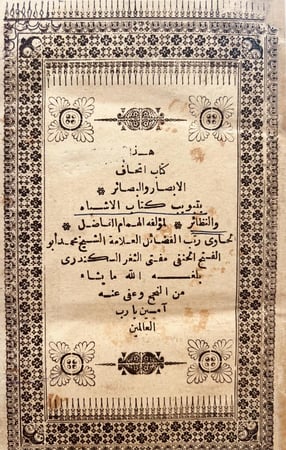 هذا
كتاب اتحاف
الابصار والبصائر
بتبويب كتاب الاشباه
والنظائر لمؤلفه الهمام الفاضل
حاوى رتب الفضائل العلامة الشيخ محمد أبو
الفتح الحنفى مفتى الثغر السكندرى
بلغه الله ما يشاء
من النجح وعفى عنه
آمين يا رب
العالمين